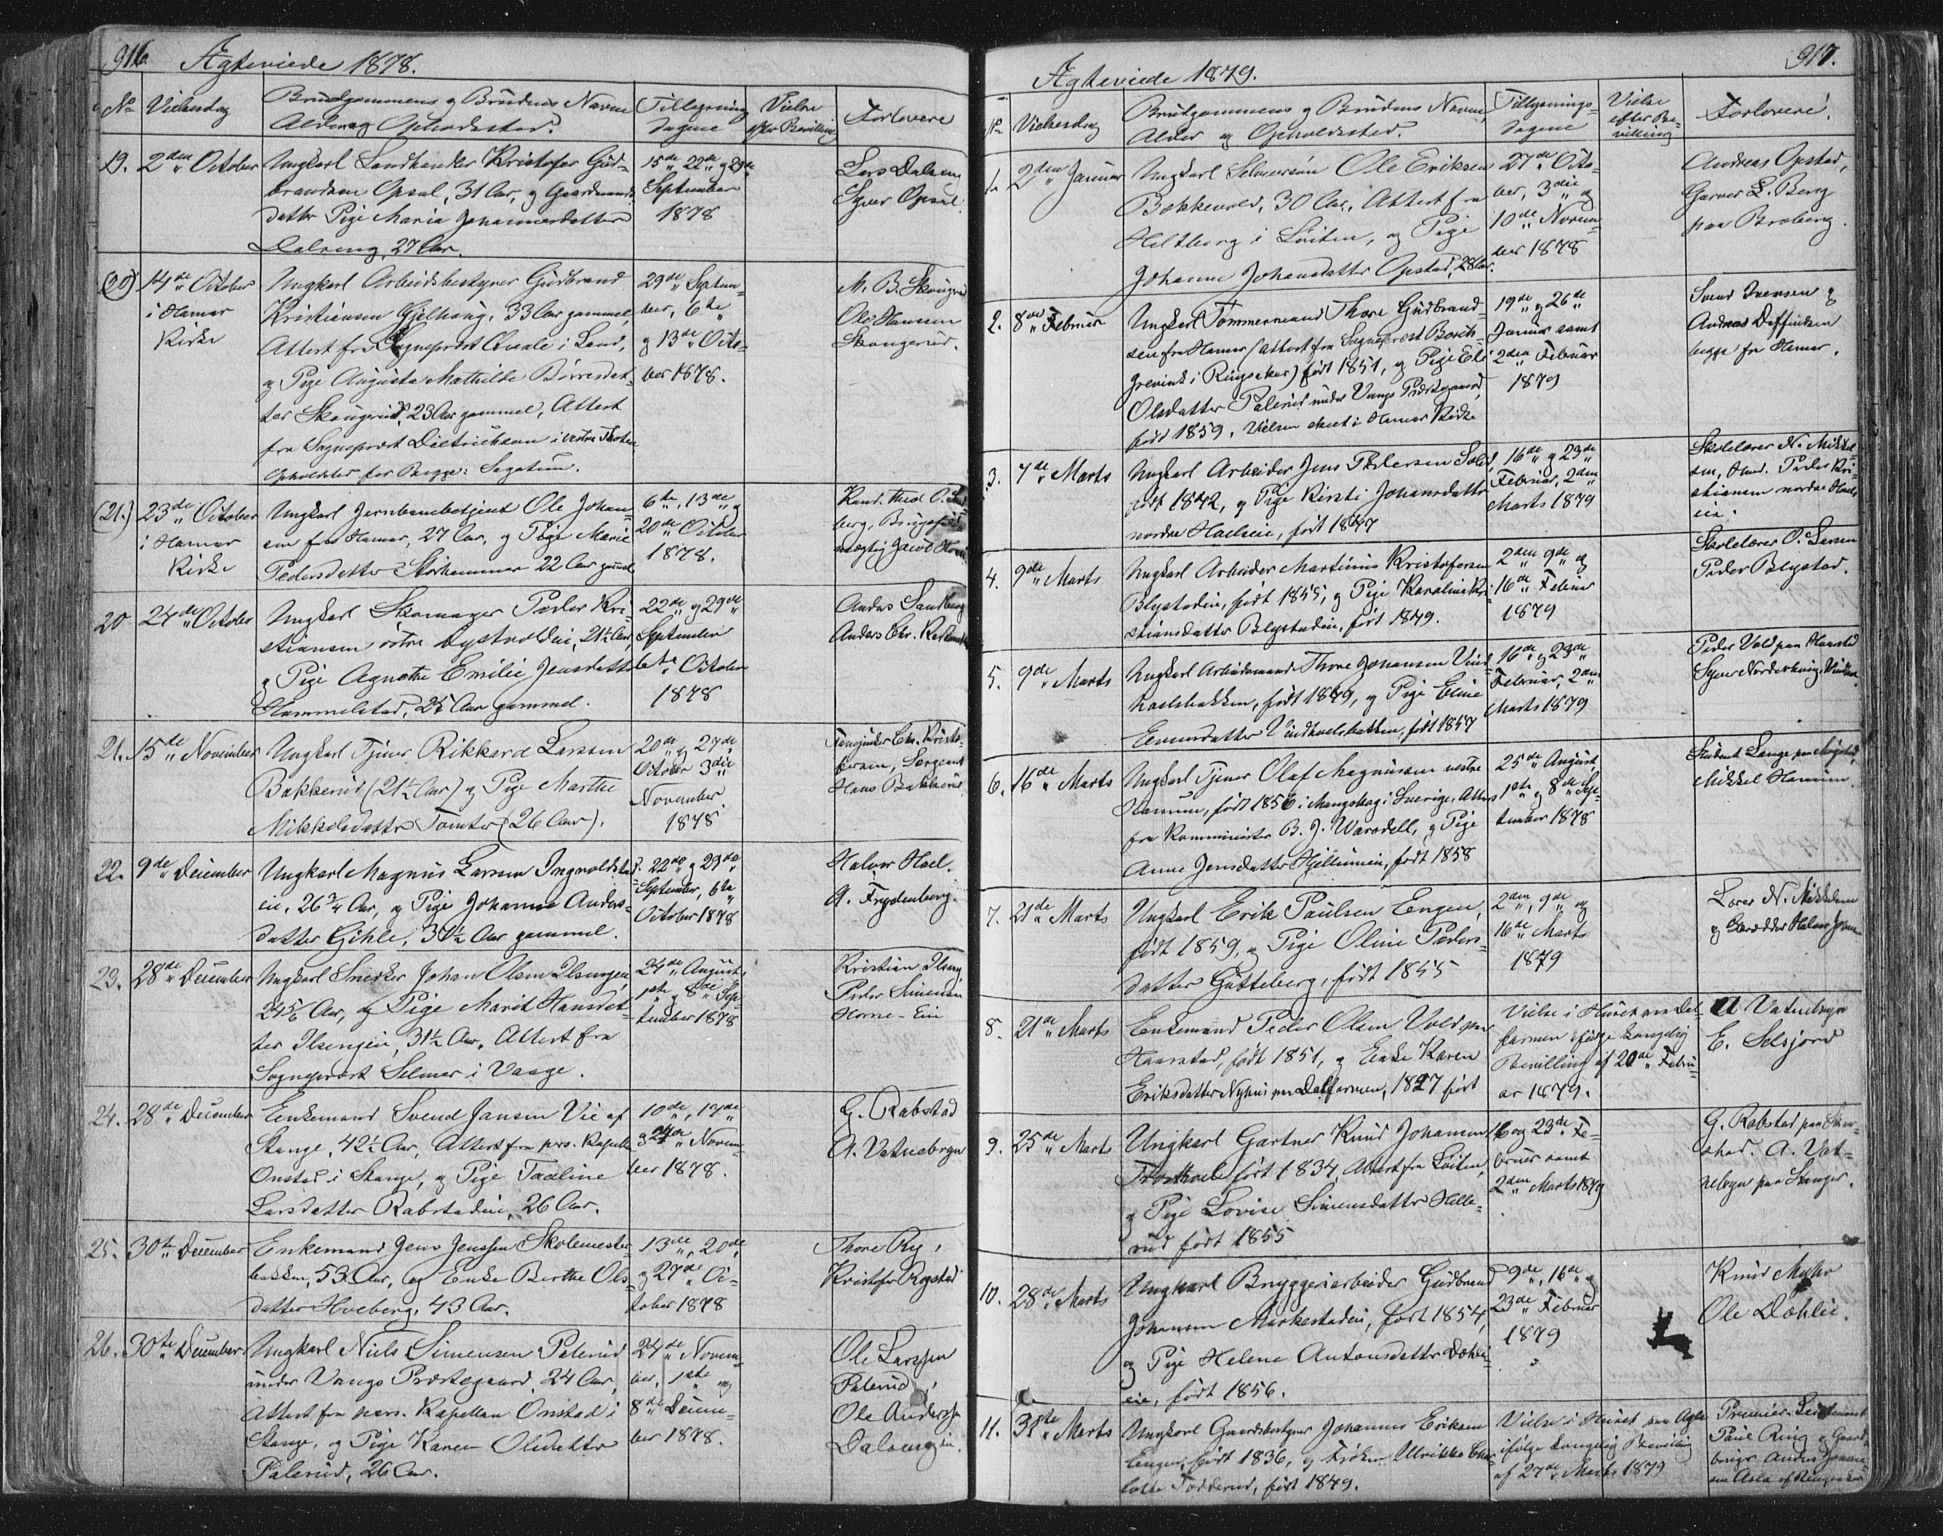 916
Ægteviede 1878.
No
Vielsesdag
Brudgommens og Brudens Navne
Alder og Opholdssted.
Tillysnings
dagene
Vielse
efter Bevilling
Forlovere
19. 2den October
Ungkarl Landhandler Kristofer Gud-
brandsen Opsal, 31 Aar, og Gaardmands
datter Pige Maria Johannesdatter
Dalseng, 27 Aar.
15de 22de og 29de
September
1878
Lars Dalseng
Syver Opsal.
(20) 14de October
i Hamar
Kirke
Ungkarl Arbeidsbestyrer Gudbrand
Kristiansen Gjelhaug, 33 Aar gammel,
Attest fra Sogneprest Qvale i Land,
og Pige Augusta Mathilde Børresdat-
ter Skougrud, 23 Aar gammel, Attest
fra Sogneprest Dietrichson i vestre Thoten
Opholder for Begge: Segatum.
29de Septem-
ber, 6te
og 13de Octo-
ber 1878.
M. B. Skougrud
Ole Hanssen
Skougerud.
(21.) 23de October
i Hamar
Kirke
Ungkarl Jernbanebetjent Ole Johan-
sen fra Hamar, 27 Aar, og Pige Marie
Pedersdatter Storhammer 22 Aar gammel
6te, 13de og
20de October
1878.
Kand. theol O.
berg, Brugsfuld
mægtig Jacob
20 27de October
Ungkarl Skomager Peder Kri-
stiansen østre 21½ Aar,
og Pige Agnethe Emilie Jensdatter
Hammelstad, 25 Aar gammel.
22de og 29de
September
6te October
1878
Anders Sandberg
Anders Chr.
21. 15de November
Ungkarl Tjener Rikkard Larssen
Bakkerud (21½ Aar) og Pige Marthe
Mikkelsdatter Tomter (26 Aar).
20de og 27de
October 3die
November
1878
Chr. Kristo-
fersen, Sergeant
Hans Bakkerud
22. 9de December
Ungkarl Magnus Larsen Ingvoldstad
eie, 26¾ Aar, og Pige Johanne Anders-
datter Gihle, 30½ Aar gammel.
22de og 29de
September, 6te
October 1878
Halvor Hoel.
A. Frydenberg.
23. 28de December
Ungkarl Snedker Johan Olsen Ilsengeie,
24 5/6 Aar, og Pige Marit Hansdat-
ter Ilsengeie, 31½ Aar. Attest fra
Sogneprest Selmer i Vaage.
24de August
1ste og 8de Sep-
tember 1878
Kristian Ilseng
Peder Simensen
Horne-Eie
24. 28de December
Enkemand Svend Jansen Vie af
Stange, 42½ Aar, Attest fra pers. Kapellan
Onstad i Stange, og Pige Pauline
Larsdatter Rabstadeie, 26 Aar.
10de, 17de
24de Novem-
ber 1878.
G. Rabstad
A. Vatnebryn
25. 30te December
Enkemand Jens Jenssen Skolemester-
bakken, 53 Aar, og Enke Berthe Ols-
datter Hveberg, 43 Aar.
13de, 20de
og 27de Oc-
tober 1878
Thore Ry,
Kristofer Rogstad
26. 30te December
Ungkarl Niels Simensen Palerud
under Vangs Præstegaard, 24 Aar,
Attest fra pers. Kapellan Onstad i
Stange, og Pige Karen Olsdatter
Palerud, 26 Aar.
24de Novem-
ber, 1ste og
8de Decem-
ber 1878.
Ole Larssen
Palerud,
Ole Anderss.
Dalsengeie.
917.
Ægteviede 1879.
No
Vielsesdag
Brudgommens og Brudens Navne,
Alder og Opholdssted.
Tillysnings-
dagene
Vielse
efter Be-
villing
Forlovere.
1. 2den Januar
Ungkarl Selveiersøn Ole Eriksen
Bekkevold, 30 Aar, Attest fra
Heltborg i Løiten, og Pige
Johanne Johansdatter Opstad, 28 Aar.
27de Octo-
ber, 3die og
10de Novem-
ber 1878
Andreas Opstad,
Garver L. Berg
paa Broberg.
2. 8de Februar
Ungkarl Tømmermand Thore Gudbrand-
sen fra Hamar (Attest fra Sogneprest Bosch-
grevink i Ringsaker) født 1851, og Pige Eli
Olsdatter Palerud under Vangs Præstegaard,
født 1859. Vielsen skeet i Hamar Kirke
19de og 26de
Januar samt
2den Februar
1879
Svend Ivensen og
Andreas Doffindsen
begge fra Hamar.
3. 7de Marts
Ungkarl Arbeider Jens Pedersen
født 1842, og Pige Kirsti Johansdatter
nordre Hoelseie, født 1847
16de og 23de
Februar, 2den
Marts 1879
Skolelærer N. Mikkel-
sen, Peder Kri-
stiansen nordre Hoels-
eie.
4. 9de Marts
Ungkarl Arbeider Martinus Kristofersen
Blystadeie, født 1855, og Pige Karoline Kri-
stiansdatter Blystadeie, født 1849.
2den 9de og
16de Februar
1879
Skolelærer O. Larsen
Peder Blystad.
5. 9de Marts
Ungkarl Arbeidsmand Thore Johansen Vind-
hoelsbakken, født 1849, og Pige Eline
Evensdatter Vindhoelsbakken, født 1857
16de og 23de
Februar, 2den
Marts 1879
Peder Vold paa Haarstad
Syver Nordenhaug
6. 16de Marts
Ungkarl Tjener Olaf Magnussen vestre
Hamum, født 1856 i Mangskog i Sverige, Attest
fra Komminister B. J. Warodell, og Pige
Anne Jensdatter Hjellumeie, født 1858
25de August
1ste og 8de Sep-
tember 1878
Student Lange paa
Mikkel Hamum.
7. 21de Marts
Ungkarl Erik Paulsen Engen,
født 1859, og Pige Oline Peders-
datter Gütteberg, født 1855
2den, 9de og
16de Marts
1879
Lærer N. Mikkelsen
og Halvor Jens
8. 21de Marts
Enkemand Peder Olsen Vold paa
Haarstad, født 1851, og Enke Karen
Eriksdatter Nyhus paa Dalfarmen, 1827 født
Vielse i Huset paa Dal-
farmen ifølge kongelig
Bevilling af 20de Febru-
ar 1879.
A Vatnebryn
E. Selsjord
9. 25de Marts
Ungkarl Gartner Knud Johansen
født 1834, Attest fra Løiten,
og Pige Lovise Simensdatter Helle-
rud født 1855
16 og 23de Fe-
bruar samt
2den Marts 1879
G. Rabstad paa
A. Vat-
nebryn paa Stanger.
10. 28de Marts
Ungkarl Bryggeriarbeider Gudbrand
Johansen Markestadeie, født 1854,
og Pige Helene Antonsdatter Dohli-
eie, født 1856.
9de, 16de og
23de Februar
1879
Knud Myhr
Ole Dohlie.
11. 31te Marts
Ungkarl Gaardbestyrer Johannes Eriksen
Enger, født 1836, og Frøken Ullrikke Char-
lotte Fodderud, født 1849.
Vielse i Huset paa
ifølge kongelig Bevilling
af 27de Marts 1879
Premier-Lieutenant
Paul Ring og Gaard-
bruger Anders